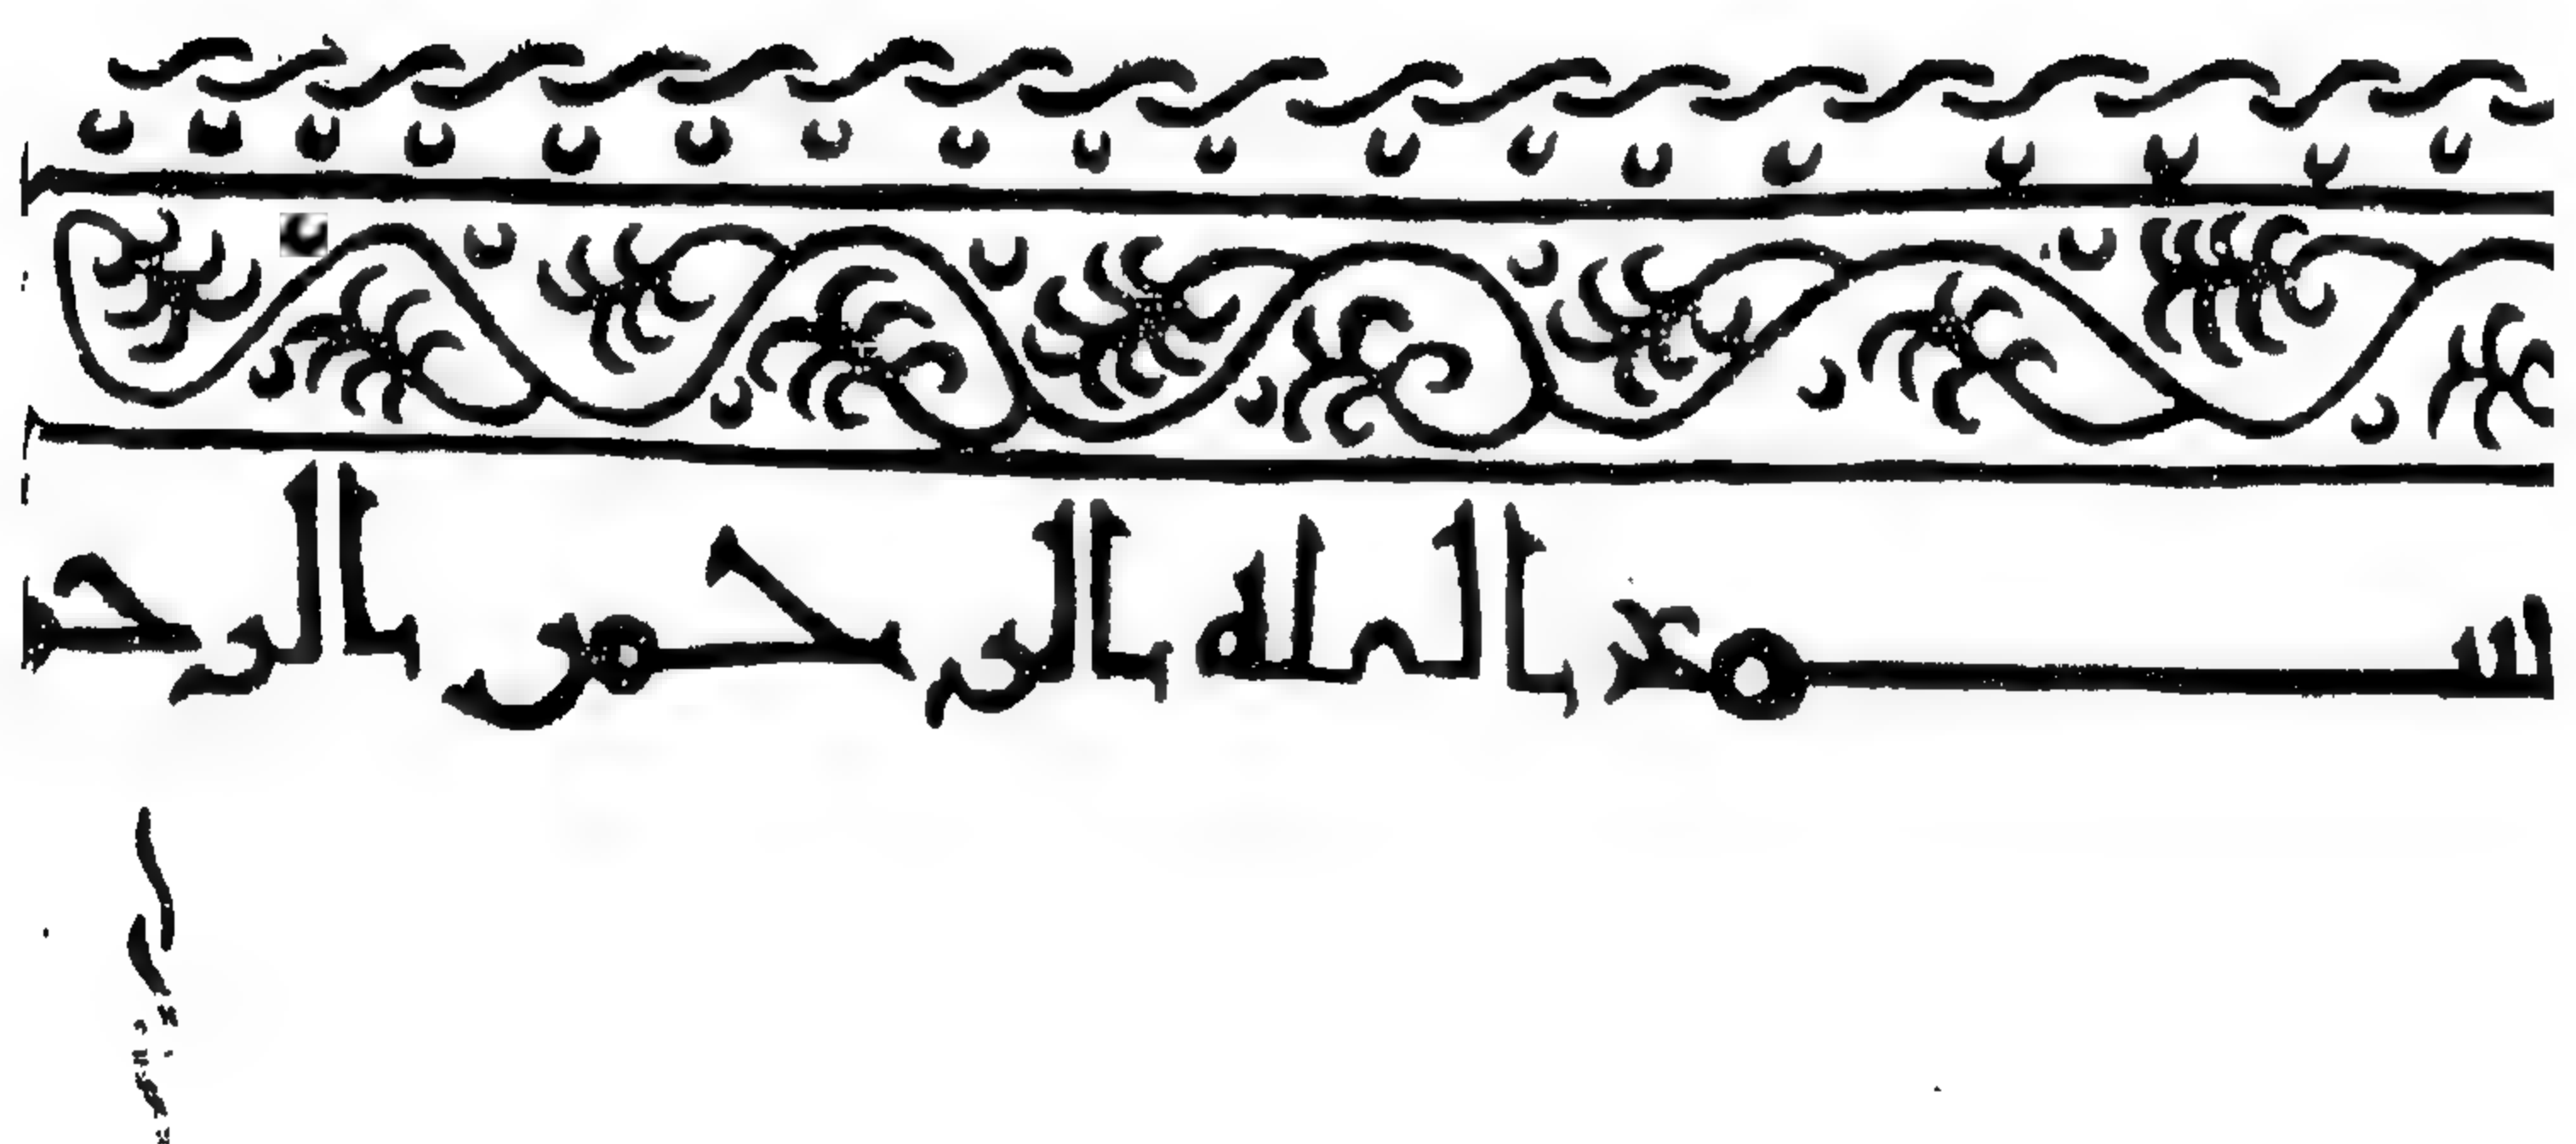 بسم الله الرحمن الرح